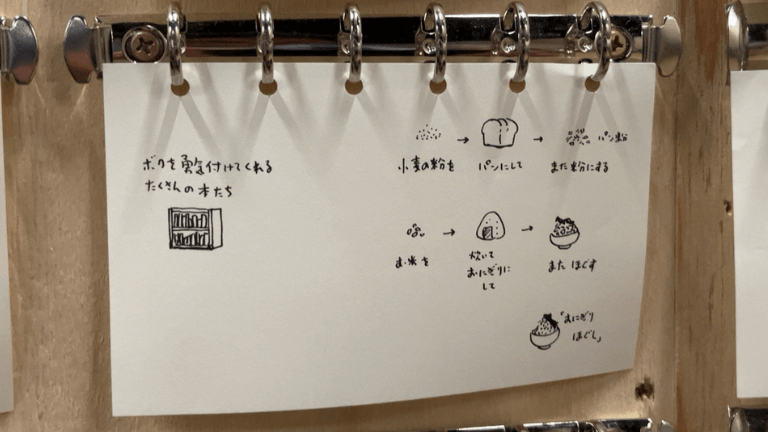 ボクを勇気付けてくれる
たくさんの本たち
小麦の粉を
パンにして
パン粉
また粉にする
お米を
炊いて
おにぎりに
して
また ほぐす
「おにぎり
ほぐし」